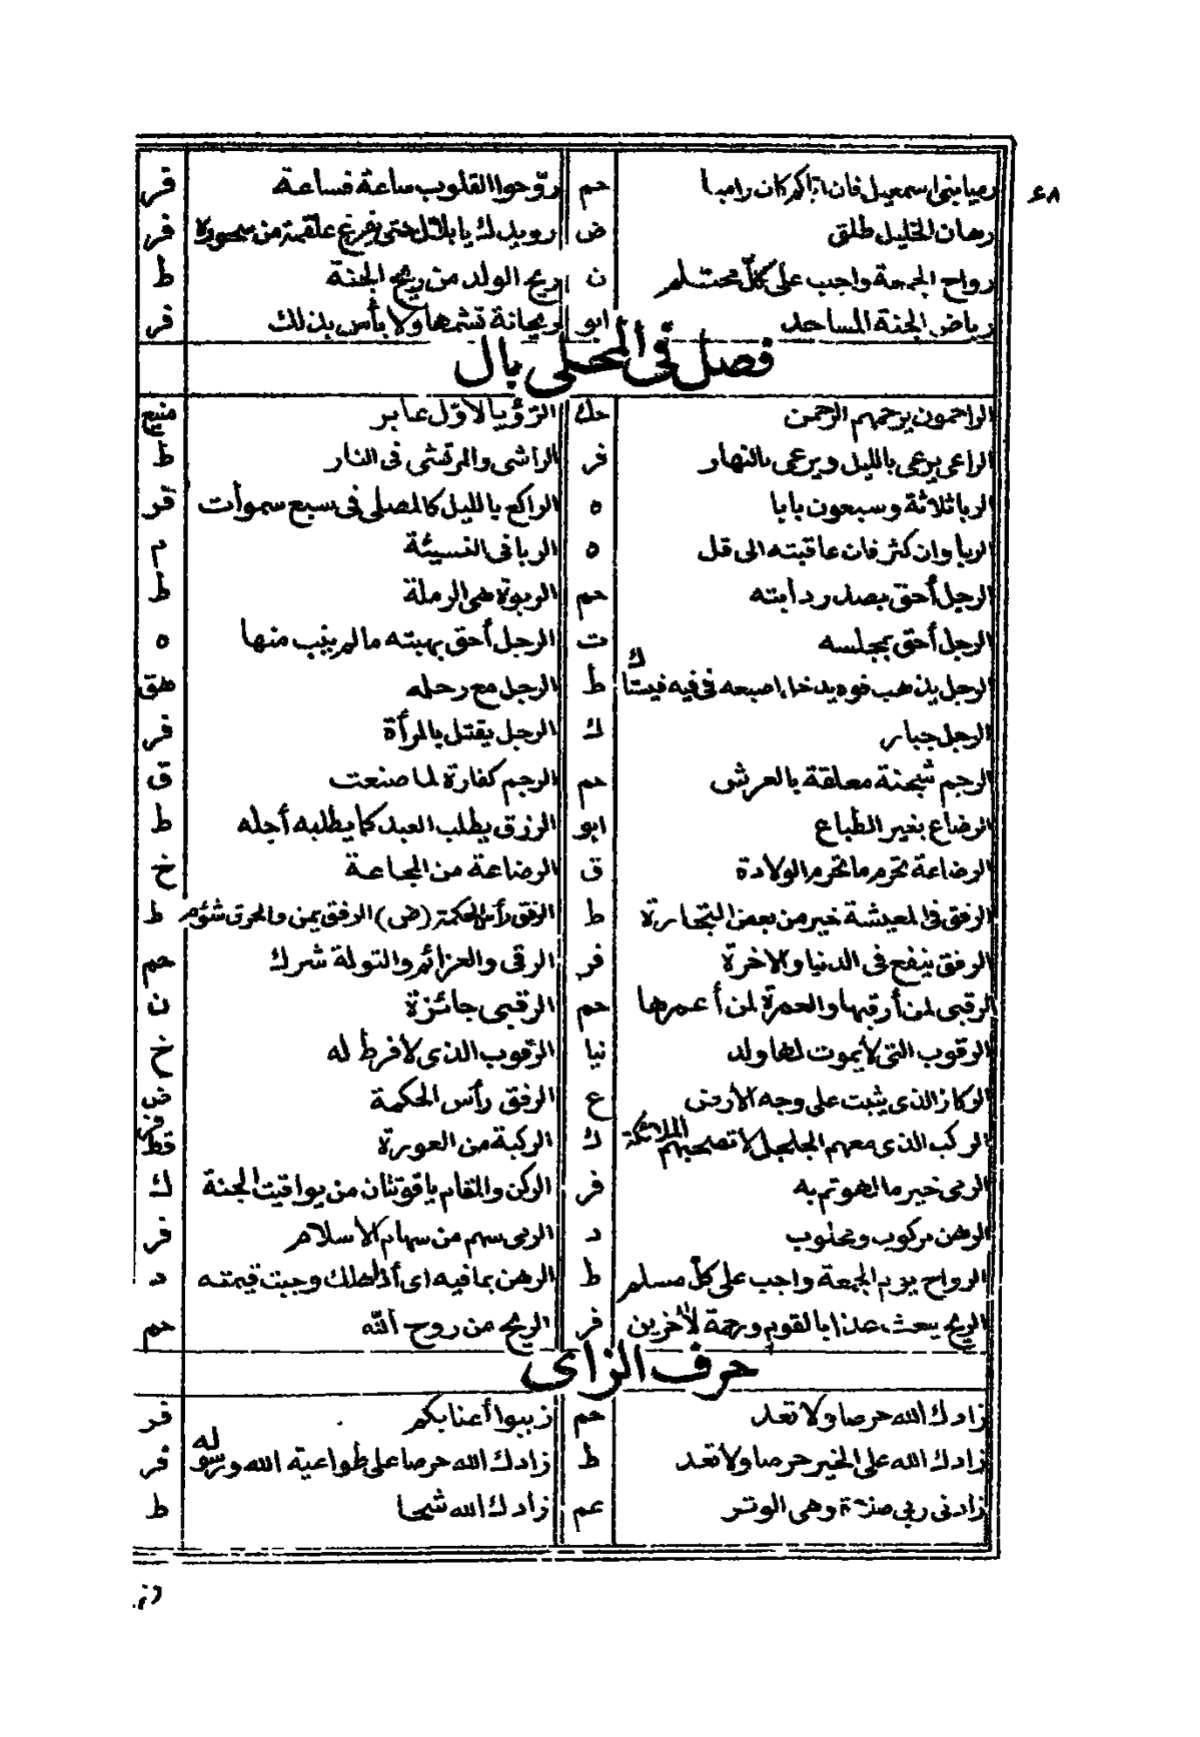 ٦٨
رميا بنى اسمعيل فان اباكم كان راميا حم روّحوا القلوب ساعة فساعة فر
رهان الخيل طلق ض رويدك يا بلال حتى يفرغ علقمة من سحوره فر
رواح الجمعة واجب على كلّ محتلم ن ريح الولد من ريح الجنة ط
رياض الجنة المساجد ابو ريحانة تشمها ولا بأس بذلك فر
فصل فى المحلى بال
الراحمون يرحمهم الرحمن حك الرّؤيا لاوّل عابر منيع
الراعى يرعى بالليل ويرعى بالنهار فر الراشى والمرتشى فى النار ط
الربا ثلاثة وسبعون بابا ه الراكع بالليل كالمصلى فى سبع سموات فر
الربا وان كثر فان عاقبته الى قل ه الربا فى النسيئة م
الرجل أحق بصدر دابته حم الربوة هى الرملة ط
الرجل أحق بمجلسه ت الرجل أحق بهبته ما لم يثب منها ه
الرجل يذهب فوه يدخل اصبعه فى فيه فيستاك ط الرجل مع رحله هق
الرجل جبار ك الرجل يقتل بالمرأة فر
الرحم شجنة معلقة بالعرش حم الرجم كفارة لما صنعت ق
الرضاع بغير الطباع ابو الرزق يطلب العبد كما يطلبه أجله ط
الرضاعة تحرم ما تحرم الولادة ق الرضاعة من المجاعة خ
الرفق فى المعيشة خير من بعض التجارة ط الرفق رأس الحكمة (ض) الرفق يمن والخرق شؤم ط
الرفق ينفع فى الدنيا والاخرة فر الرقى والعزائم والتولة شرك حم
الرقبى لمن أرقبها والعمرة لمن أعمرها حم الرقبى جائزة ن
الرقوب التى لا يموت لها ولد نيا الرقوب الذى لا فرط له خ
الركاز الذى يثبت على وجه الارض ع الرفق رأس الحكمة ض فر
الركب الذى معهم الجلجل لا تصحبهم الملائكة ك الركبة من العورة قط
الرمى خير ما لهوتم به فر الركن والمقام ياقوتتان من يواقيت الجنة ك
الرهن مركوب ومحلوب د الرمى سهم من سهام الاسلام فر
الرواح يوم الجمعة واجب على كلّ مسلم ط الرهن بما فيه اى أذا هلك وجبت قيمته د
الريح يبعث عذابا لقوم ورحمة لآخرين فر الريح من روح اللّه حم
حرف الزاى
زادك الله حرصا ولا تعد حم زببوا أعنابكم فر
زادك الله على الخير حرصا ولا تعد ط زادك الله حرصا على طواعية الله ورسوله فر
زادنى ربى صلاة وهى الوتر عم زادك الله شحا ط